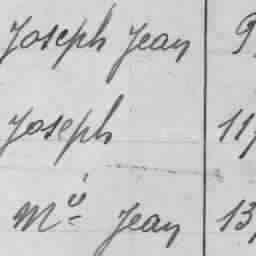 Joseph Jean 9
Joseph 11
Mie Jean 13